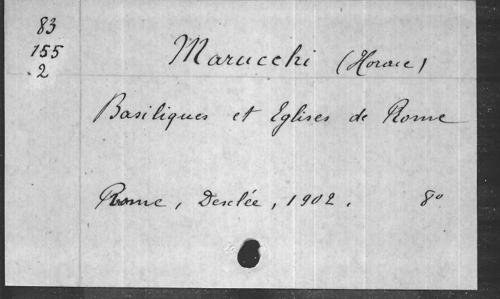 83
155
2
Marucchi (Horace)
Basiliques et Eglises de Rome
Rome, Desclée, 1902. 8°